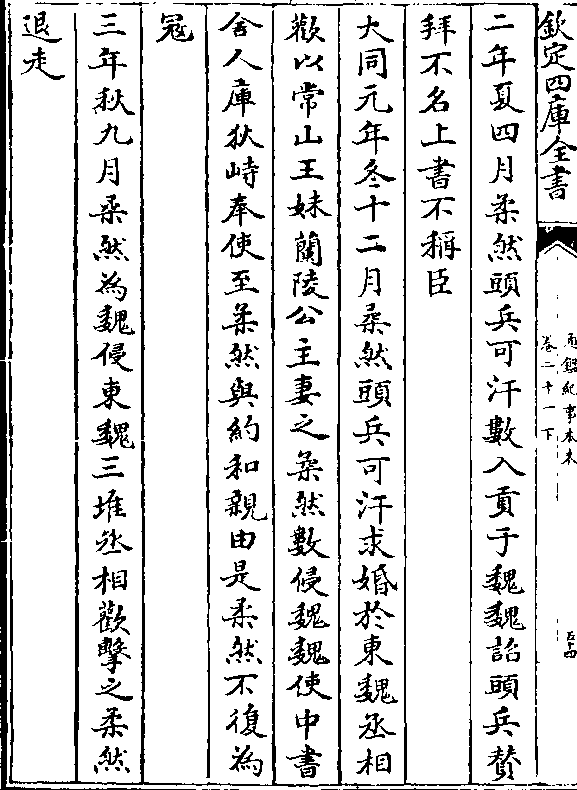 欽定四庫全書
通鑑紀事本末
卷二十一下
五十四
二年夏四月柔然頭兵可汗數入貢于魏魏詔頭兵贊
拜不名上書不稱臣
大同元年冬十二月柔然頭兵可汗求婚於東魏丞相
歡以常山王妹蘭陵公主妻之柔然數侵魏魏使中書
舍人庫狄峙奉使至柔然與約和親由是柔然不復為
冦
三年秋九月柔然為魏侵東魏三堆丞相歡擊之柔然
退走